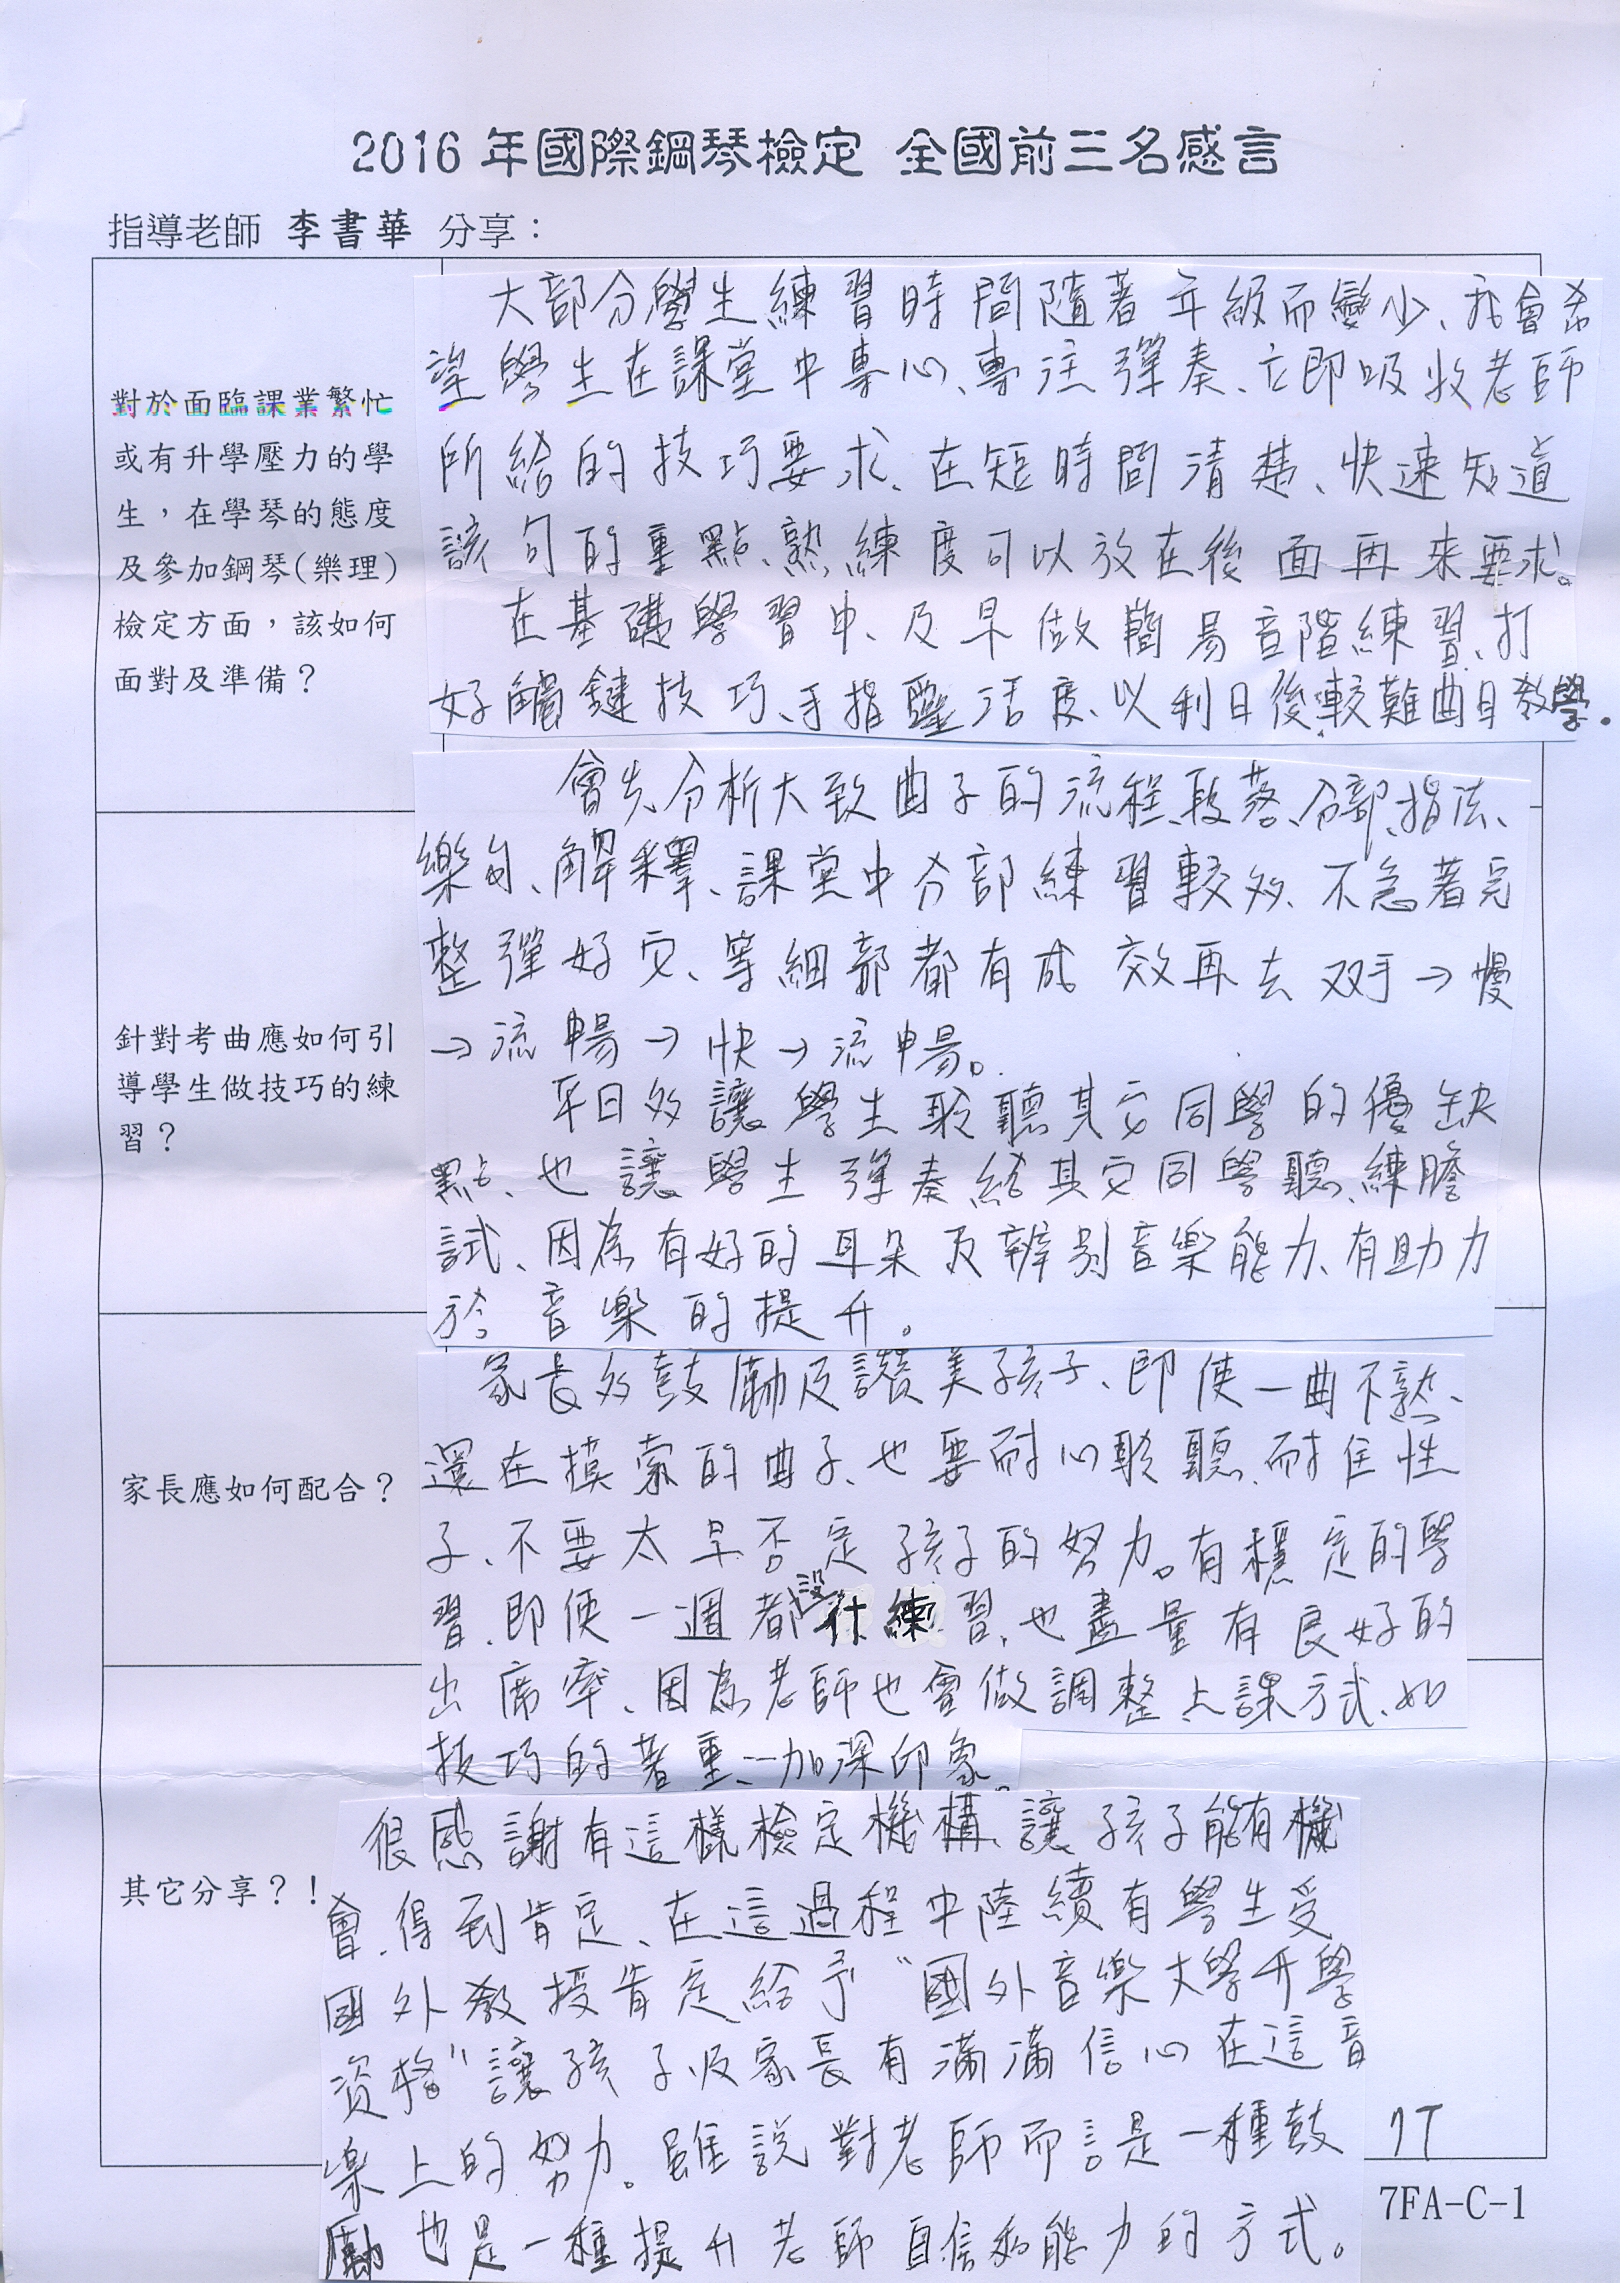 2016 年國際鋼琴檢定 全國前三名感言
指導老師 李書華 分享：
對於面臨課業繁忙
或有升學壓力的學
生，在學琴的態度
及參加鋼琴(樂理)
檢定方面，該如何
面對及準備？
大部分學生練習時間隨著年級而變少、我會希
望學生在課堂中專心、專注彈奏、立即吸收老師
所給的技巧要求、在短時間清楚、快速知道
該句的重點、熟練度可以放在後面再來要求。
在基礎學習中、及早做簡易音階練習、打
好觸鍵技巧、手指靈活度、以利日後較難曲目教學。
針對考曲應如何引
導學生做技巧的練
習？
會先分析大致曲子的流程、段落、分部、指法、
樂句、解釋、課堂中分部練習較多、不急著完
整彈好它、等細部都有成效再去双手→慢
→流暢→快→流暢。
平日多讓學生聆聽其它同學的優缺
點、也讓學生彈奏給其它同學聽、練膽
試、因為有好的耳朵及辨別音樂能力、有助力
於音樂的提升。
家長應如何配合？
家長多鼓勵及讚美孩子、即使一曲不熟、
還在摸索的曲子、也要耐心聆聽、耐住性
子、不要太早否定孩子的努力。有穩定的學
習、即使一週都沒什練習、也盡量有良好的
出席率、因為老師也會做調整上課方式、如
技巧的著重、加深印象。
其它分享？！
很感謝有這樣檢定機構、讓孩子能有機
會、得到肯定、在這過程中陸續有學生受
國外教授肯定給予“國外音樂大學升學
資格”讓孩子及家長有滿滿信心在這音
樂上的努力。雖說對老師而言是一種鼓
勵也是一種提升老師自信和能力的方式。
7FA-C-1